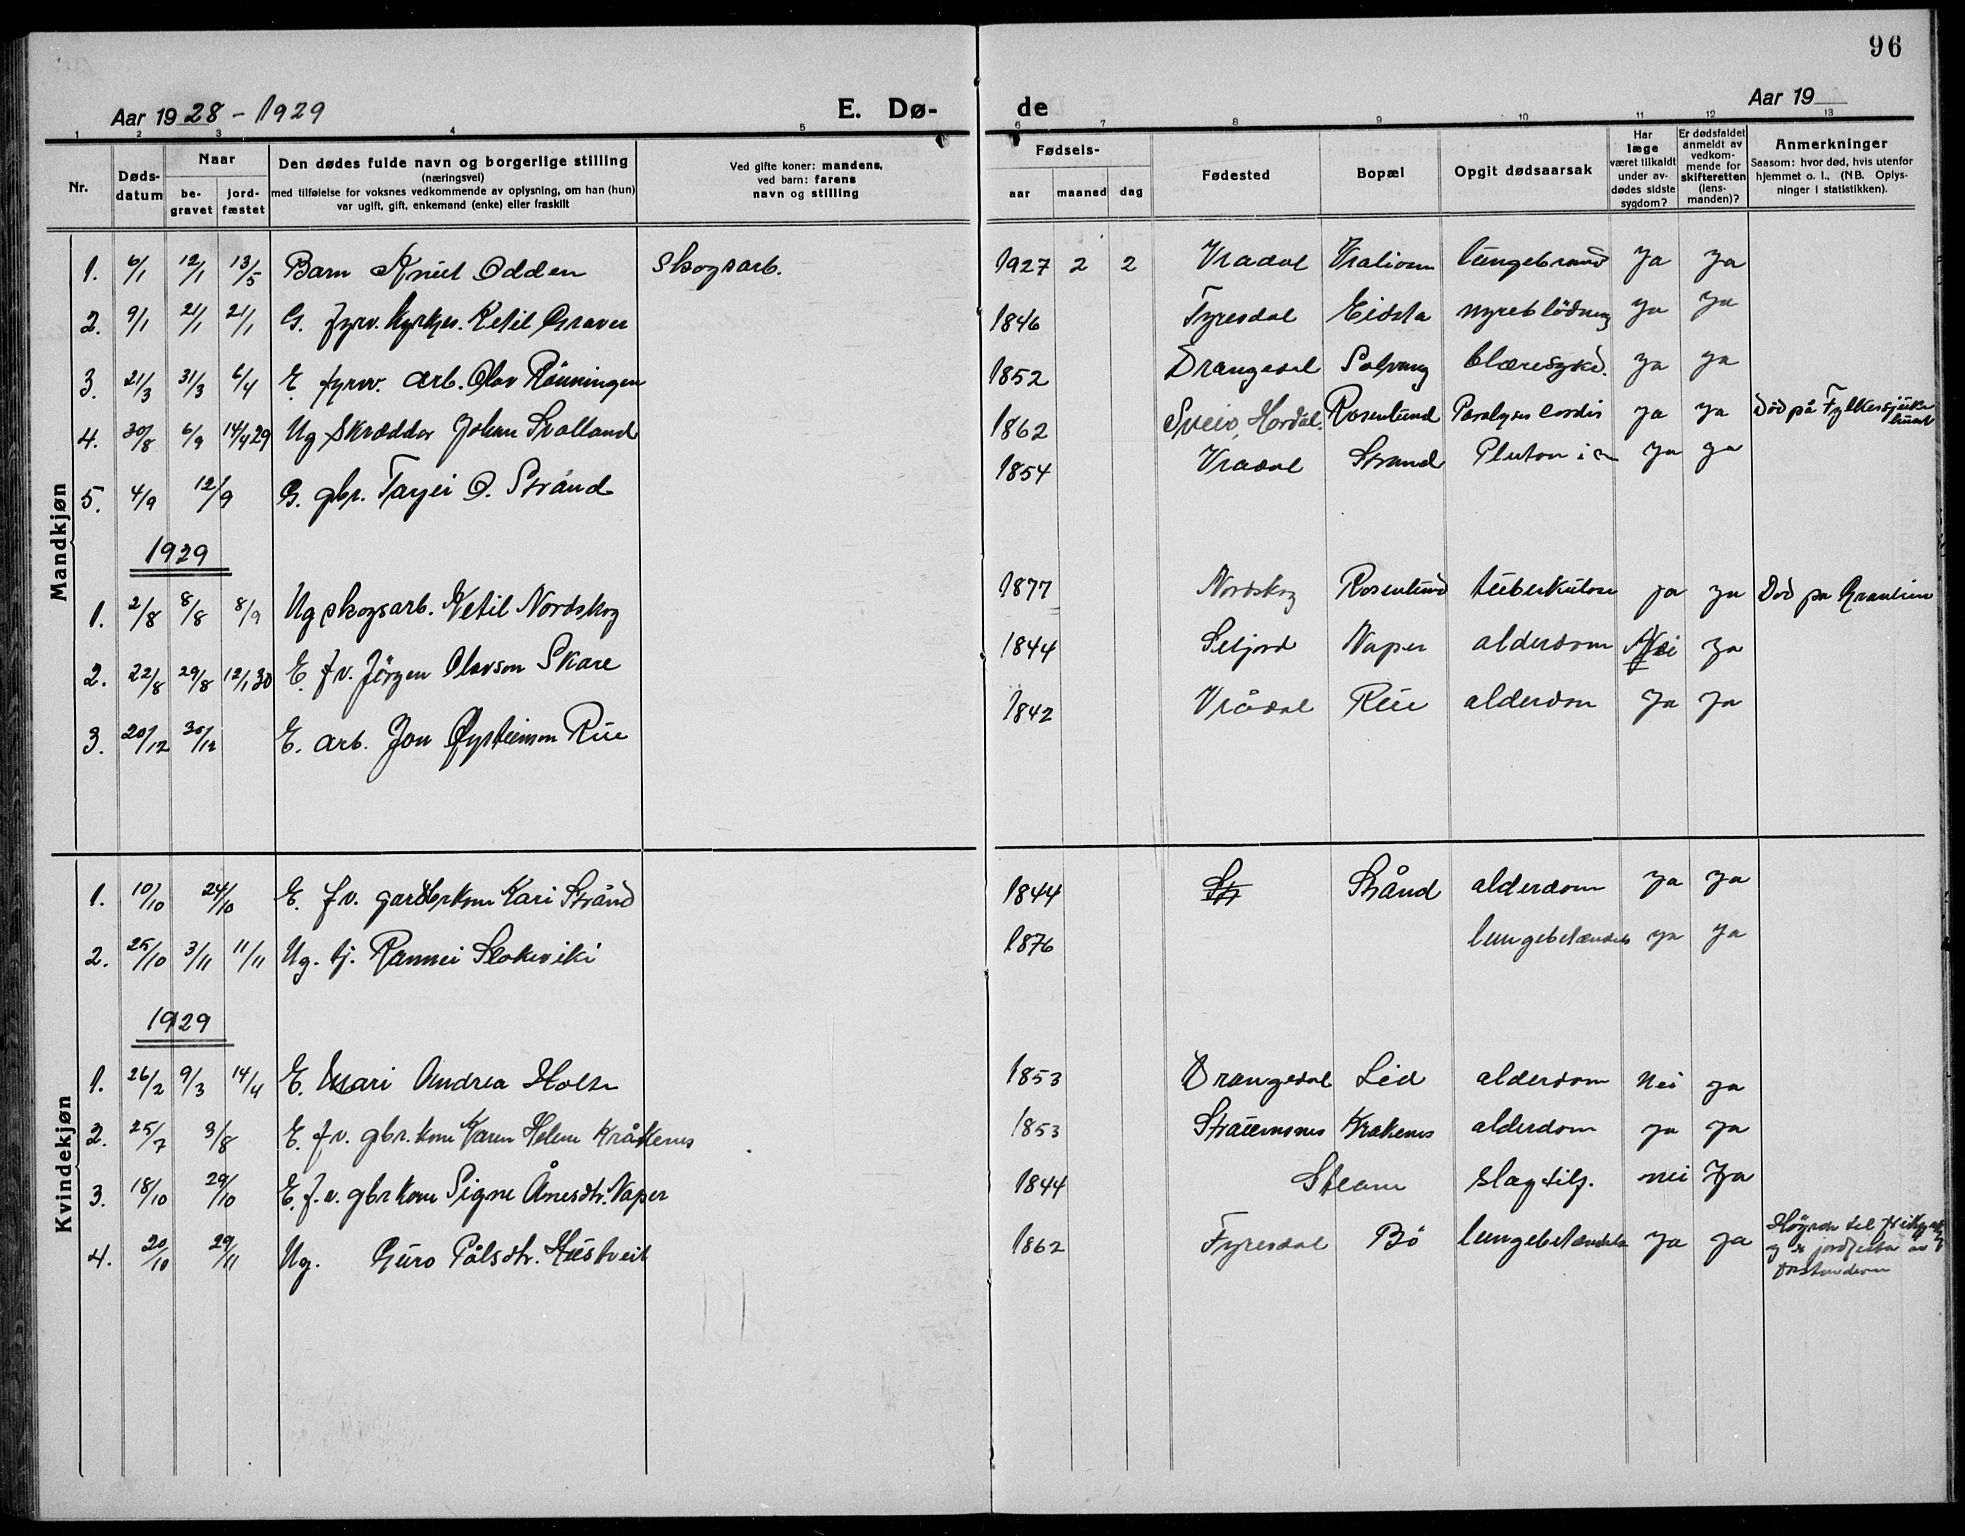 96
Aar 1928-1929 E. Dø- de Aar 19
1 2 3 4 5 6 7 8 9 10 11 12 13
Nr. Døds-datum Naar be-gravet jord-fæstet Den dødes fulde navn og borgerlige stilling (næringsvei) med tilføielse for voksnes vedkommende av oplysning, om han (hun) var ugift, gift, enkemand (enke) eller fraskilt Ved gifte koner: mandens, ved barn: farens navn og stilling Fødsels- aar maaned dag Fødested Bopæl Opgit dødsaarsak Har læge været tilkaldt under av-dødes sidste sygdom? Er dødsfaldet anmeldt av vedkom-mende for skifteretten (lens-manden)? Anmerkninger Saasom: hvor død, hvis utenfor hjemmet o. l., (NB. Oplys-ninger i statistikken).
Mandkjøn
1. 6/1 12/1 13/5 Barn Knut Odden Skogsarb. 1927 2 2 Vradal Vraliosen lungebrand ja ja
2. 9/1 21/1 21/1 G. fyrv. kyrkjes. Ketil Graver 1846 Fyresdal Eidsta nyreblödning ja ya
3. 21/3 31/3 6/4 E. fyrvv. arb. Olav Rönningen 1852 Drangedal Solvang blæresykd. ja ja
4. 30/8 6/9 14/4 29 Ug skrædder Johan Svolland 1862 Sveio, Hordal. Rosenlund Paralyses cordis ja ja Död på Fylkessjuke
5. 4/9 12/9 G. gbr. Tarjei O. Stränd 1854 Vradal Strand ja ja
1929
1. 2/8 8/8 8/9 Ug skogsarb. Ketil Nordskog 1877 Nordskog Rosenlund tuberkulose ja ja Död pa Granlien
2. 22/8 29/8 12/1 30 E. f.v. Jörgen Olavson Skare 1844 Seljord Naper alderdom Nei ja
3. 20/12 30/12 E. arb. Jon Øysteinson Rue 1842 Vrådal Rue alderdom ja ja
Kvindekjøn
1. 10/10 24/10 E. f.v. gardbrkone Kari Stränd 1844 Stränd alderdom ja ja
2. 25/10 3/11 11/11 Ug. tj. Rannei Slokviki 1876 lungebetændels ja ja
1929
1. 26/2 9/3 14/4 E. Mari Andrea Holte 1853 Drangedal Lid alderdom Nei ja
2. 25/7 3/8 E. f.v. gbr.kone Karen Helene Kråkenes 1853 Straumsnes Krakenes alderdom ja ja
3. 18/10 29/10 E. f.v. gbrkone Signe Ånesdtr. Naper 1844 slagtilf. nei Ja
4. 20/10 29/11 Ug. Guro Pålsdtr. Hustveit 1862 Fyresdal Bö lungebetændels ja ja Höyrde til